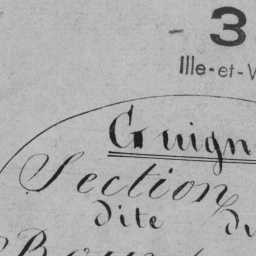 - 3
Ille-et-V
Guign
Section
dite du
Bour